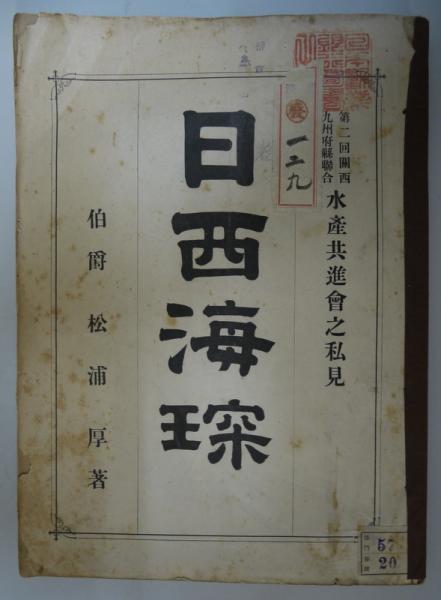 第二回關西
九州府縣聯合
水產共進會之私見
日西海琛
伯爵 松浦厚著
一二九
57
20